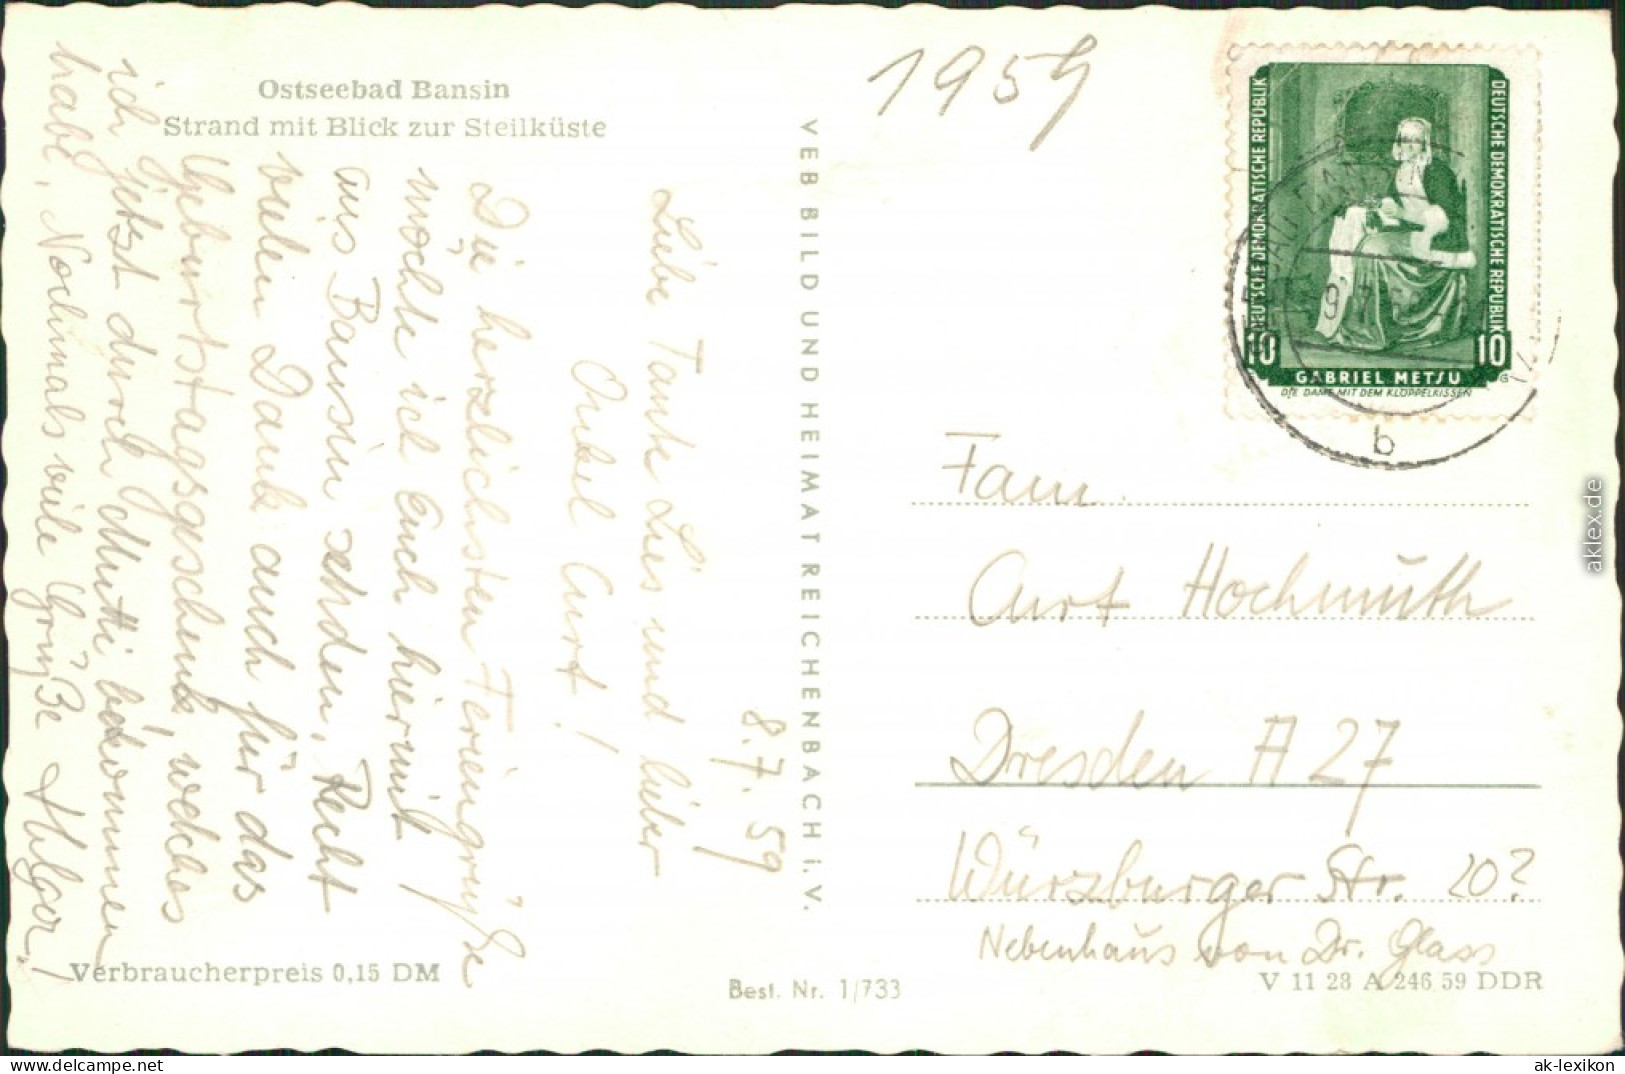 Ostseebad Bansin
Strand mit Blick zur Steilküste
8.7.59
Liebe Tante Lies und lieber
Onkel Curt!
Die herzlichsten Feriengrüße
möchte ich Euch hiermit
aus Bansin senden. Recht
vielen Dank auch für das
Geburtstagsgeschenk, welches
ich jetzt durch Mutti bekommen
habe. Nochmals viele Grüße Holger!
Verbraucherpreis 0,15 DM
VEB BILD UND HEIMAT REICHENBACH i. V.
Best. Nr. 1/733
1959
DEUTSCHE DEMOKRATISCHE REPUBLIK
DEUTSCHE DEMOKRATISCHE REPUBLIK
10 10
GABRIEL METSU
DIE DAME MIT DEM KLÖPPELKISSEN
b
Fam.
Curt Hochmuth
Dresden A 27
Würzburger Str. 20?
Nebenhaus von Dr. Glass
V 11 28 A 246 59 DDR
aklex.de
delcampe.net
ak-lexikon